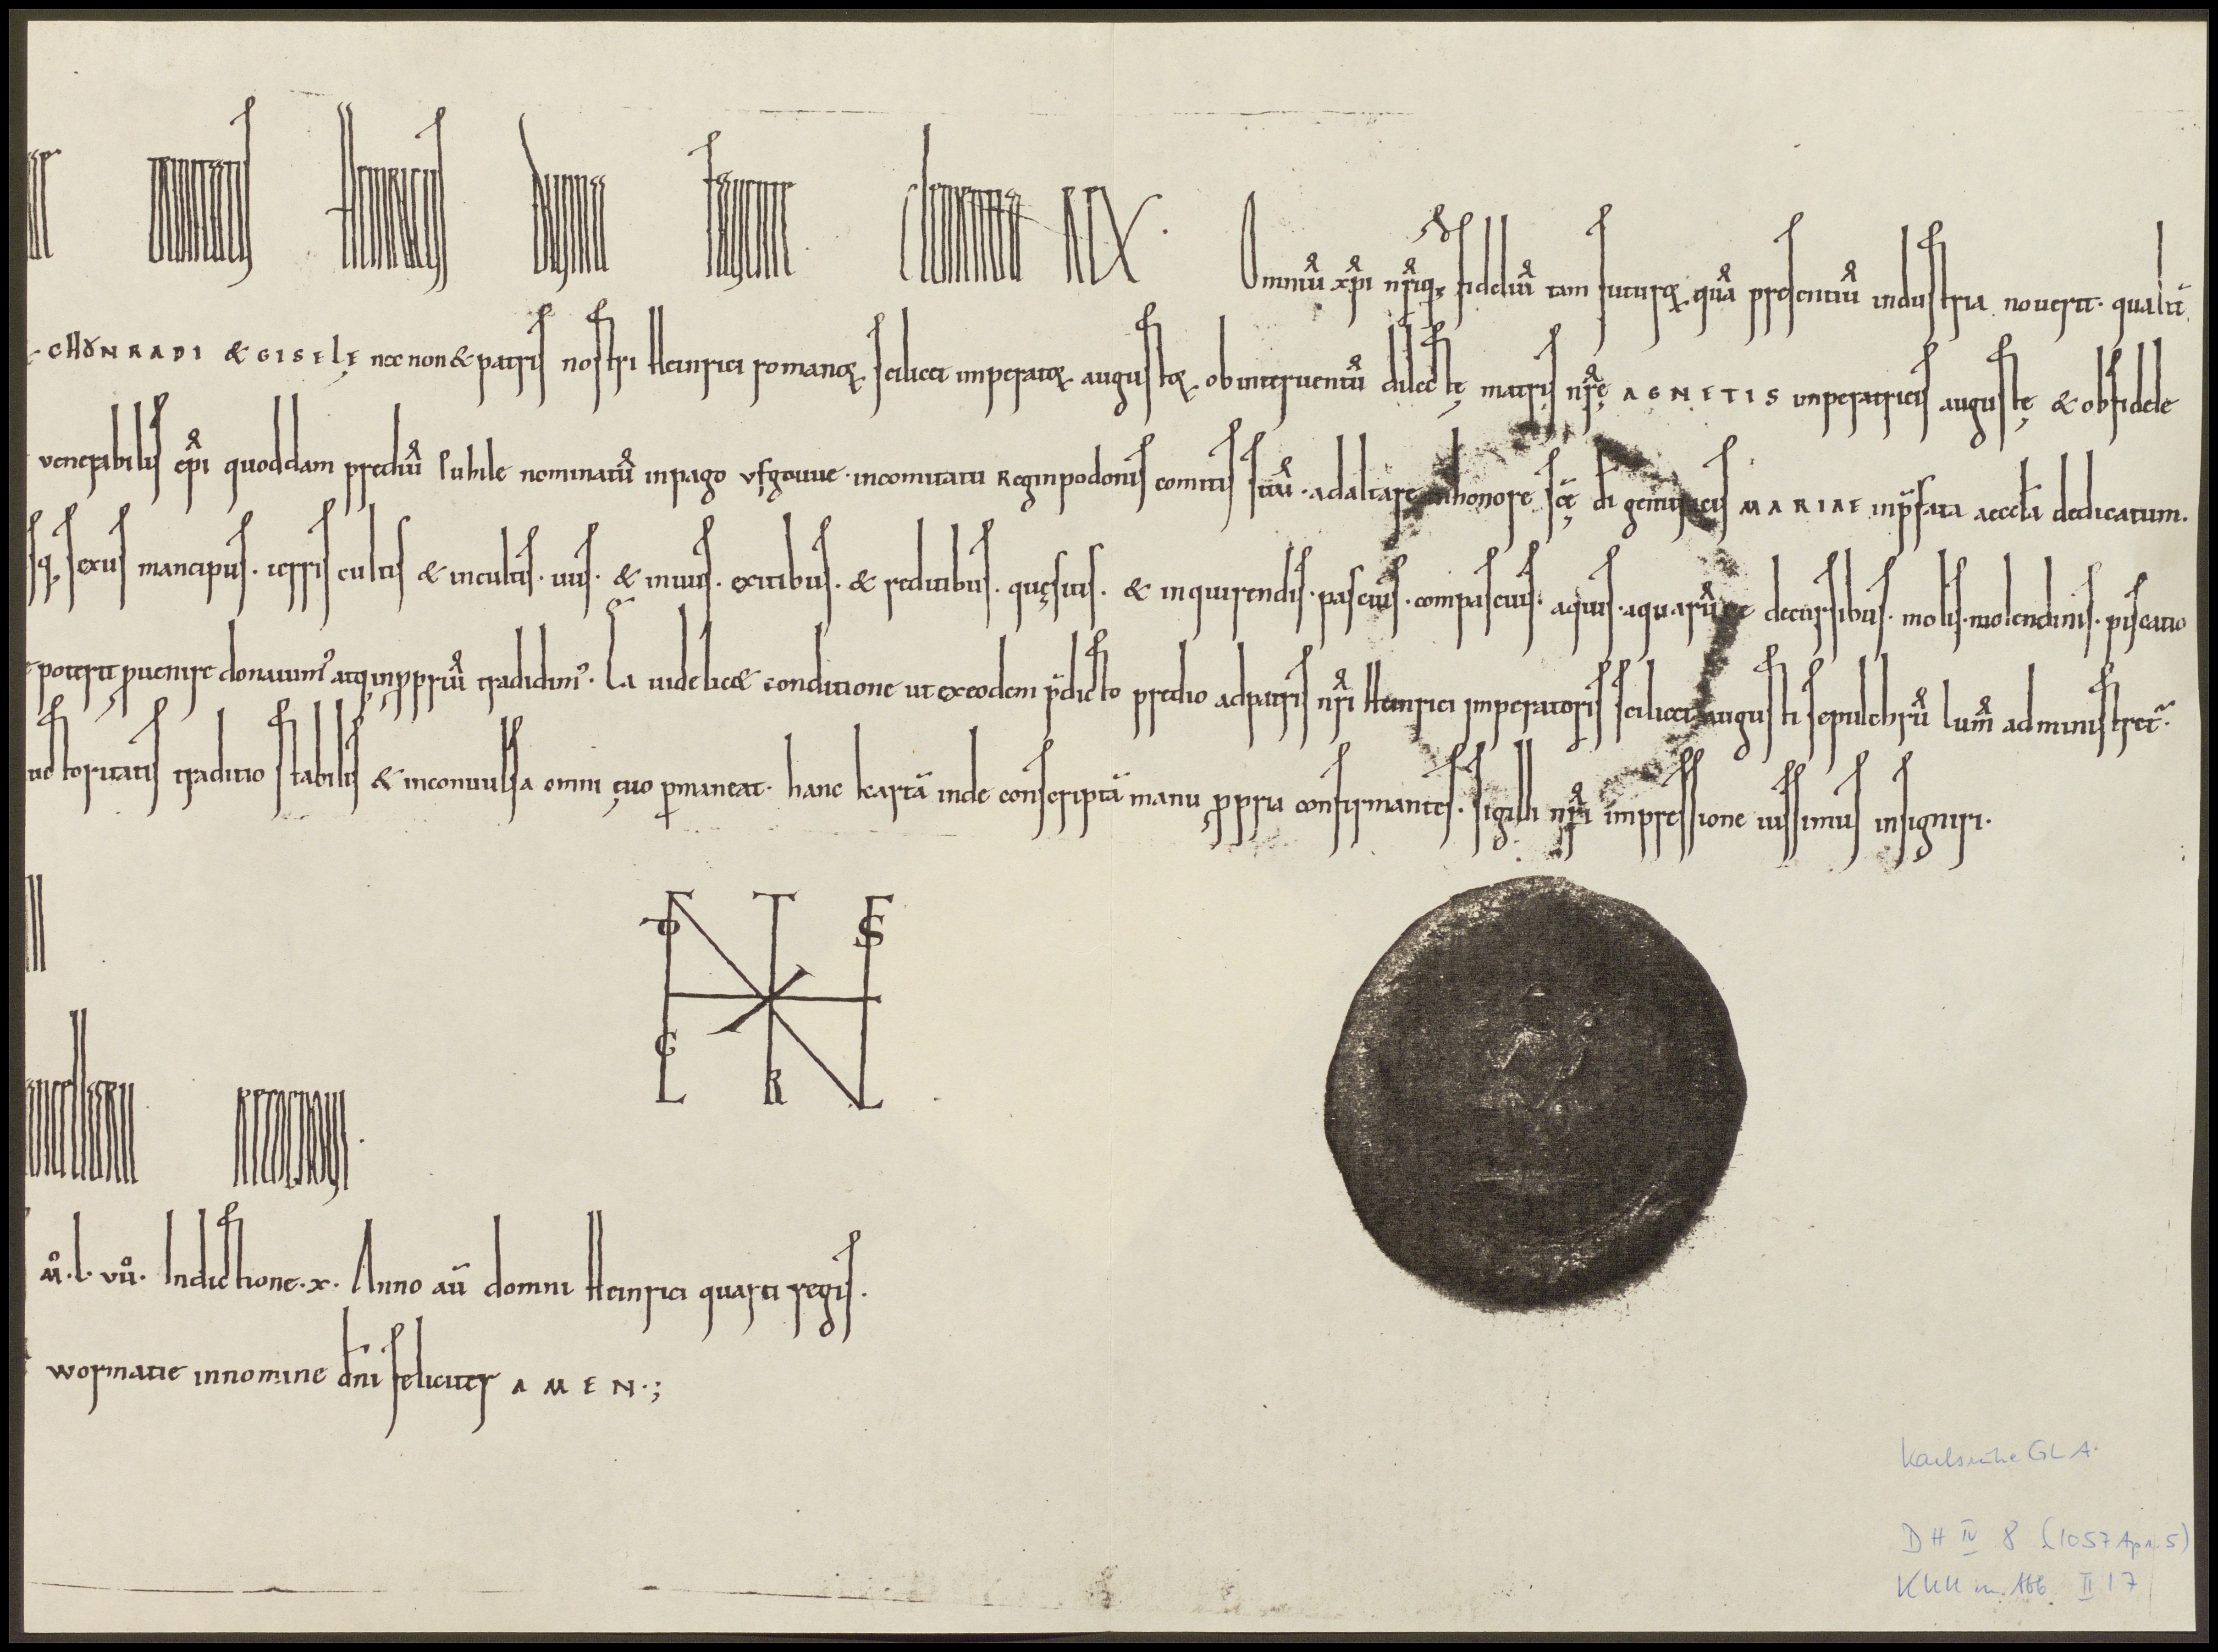 TRINITATIS HEINRICUS DIVINA FAVENTE CLEMENTIA REX. Omniũ xp̃i nr̃iq; fidelium tam futuroꝝ quã presentiũ industria noverit. qualit̃
CHǒNRADI & GISELĘ nec non & patris nostri Heinrici romanoꝝ scilicet imperatoꝝ augustoꝝ ob interuentũ dilectę matris nr̃ę AGNETIS imperatricis augustę & ob fidele
venerabilis ep̃i quoddam prediũ suhile nominatũ in pago vfgouue. in comitatu Reginpodonis comitis sitũ. ad altare in honore sc̃ę di genitricis MARIAE in p̃fata aeccła dedicatum.
sq; sexus mancipiis. terris cultis & incultis. uiis. & inuiis. exitibus. & reditibus. quęsitis. & inquirendis. pascuis. compascuis. aquis. aquarũue decursibus. molis. molendinis. piscatio
poterit ꝓuenire donauim᾿ atq; in ꝓpriũ tradidim᾿. Ea uidelicet conditione ut ex eodem p̃dicto predio ad patris nr̃i Heinrici imperatoris scilicet augusti sepulchrũ lum̃ administret᷑.
uctoritatis traditio stabilis & inconuulsa omni ęuo ꝑmaneat. hanc kartã inde conscriptã manu ꝓpria confirmantes. sigilli nr̃i impressione iussimus insigniri.
ancellarii RECOGNOVI.
M̊. l. vıı̊. Indictione. x. Anno aũ domni Heinrici quarti regis.
wormatie in nomine dñi feliciter AMEN.;
Karlsruhe GLA.
DH IV 8 (1057 Apr. 5)
KUU in Abb. II 17